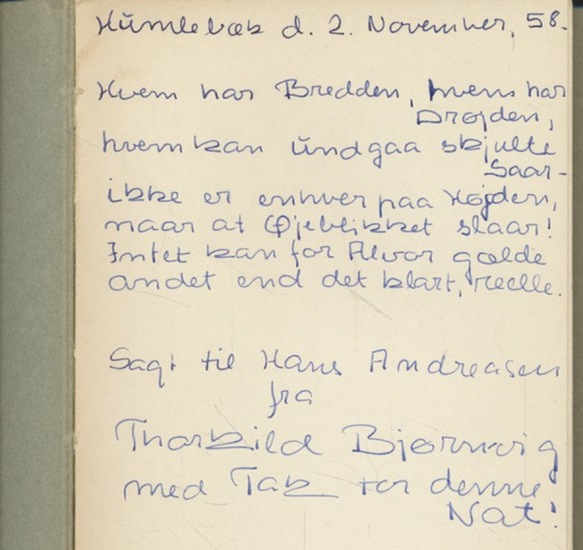 Humlebæk d. 2. November, 58.
Hvem har Bredden, hvem har
Drøjden,
hvem kan undgaa skjulte
Saar-
ikke er enhver paa Højden,
naar at Øjeblikket slaar!
Intet kan for Alvor gælde
andet end det klart, reelle.
Sagt til Hans Andreasen
fra
Thorkild Bjørnvig
med Tak for denne
Nat!